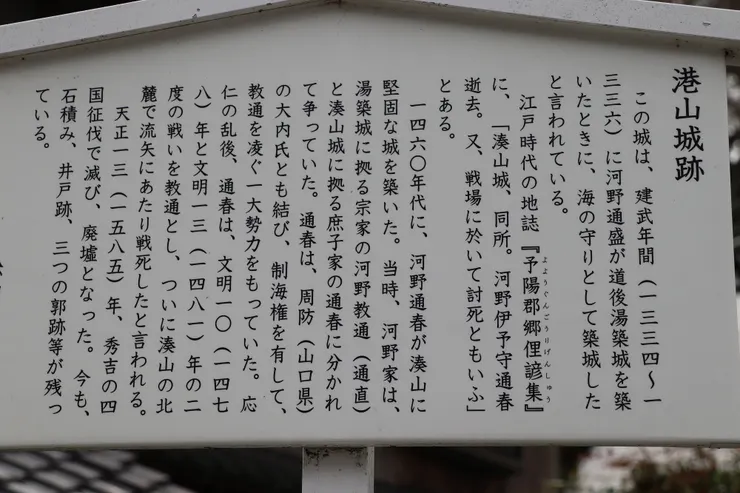 港山城跡
この城は、建武年間（一三三四〜一
三三六）に河野通盛が道後湯築城を築
いたときに、海の守りとして築城した
と言われている。
江戸時代の地誌『予陽郡郷俚諺集』
よようぐんごうりげんしゅう
に、「湊山城、同所。河野伊予守通春
逝去。又、戦場に於いて討死ともいふ」
とある。
一四六〇年代に、河野通春が湊山に
堅固な城を築いた。当時、河野家は、
湯築城に拠る宗家の河野教通（通直）
と湊山城に拠る庶子家の通春に分かれ
て争っていた。通春は、周防（山口県）
の大内氏とも結び、制海権を有して、
教通を凌ぐ一大勢力をもっていた。応
仁の乱後、通春は、文明一〇（一四七
八）年と文明一三（一四八一）年の二
度の戦いを教通とし、ついに湊山の北
麓で流矢にあたり戦死したと言われる。
天正一三（一五八五）年、秀吉の四
国征伐で滅び、廃墟となった。今も、
石積み、井戸跡、三つの郭跡等が残っ
ている。